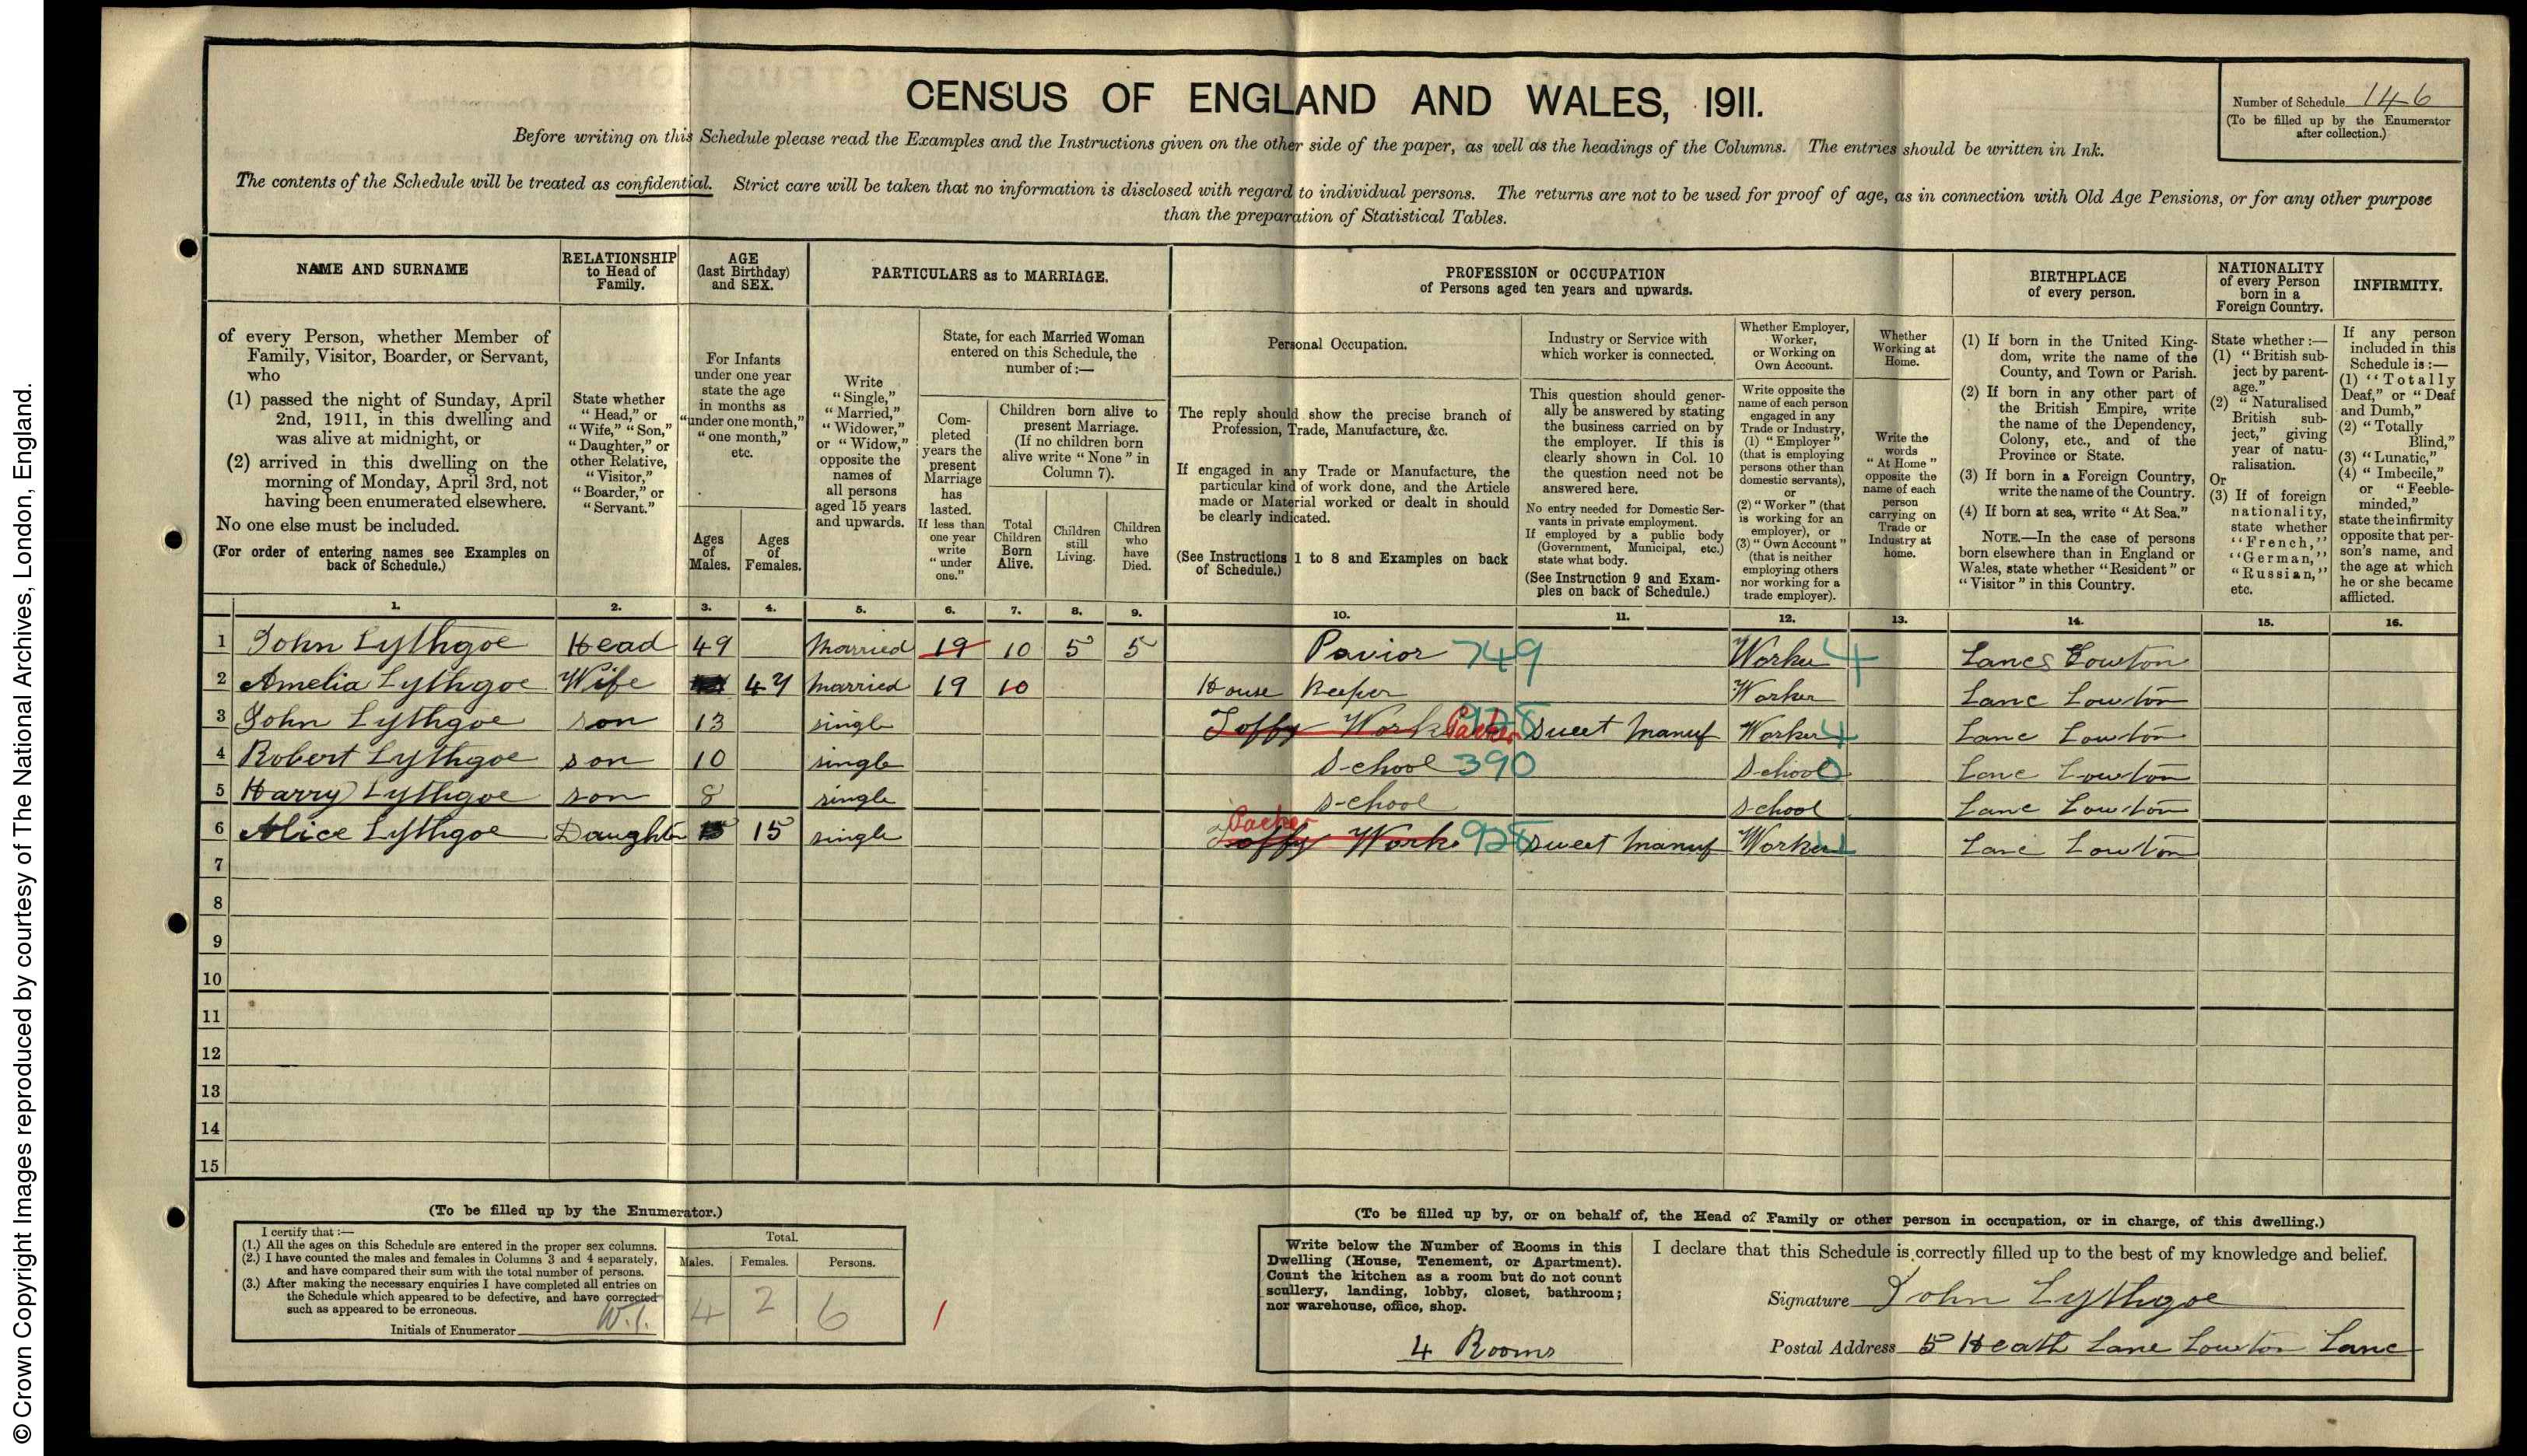 © Crown Copyright Images reproduced by courtesy of The National Archives, London, England.
CENSUS OF ENGLAND AND WALES, 1911.
Number of Schedule 146
(To be filled up by the Enumerator
after collection.)
Before writing on this Schedule please read the Examples and the Instructions given on the other side of the paper, as well as the headings of the Columns. The entries should be written in Ink.
The contents of the Schedule will be treated as confidential. Strict care will be taken that no information is disclosed with regard to individual persons. The returns are not to be used for proof of age, as in connection with Old Age Pensions, or for any other purpose
than the preparation of Statistical Tables.
NAME AND SURNAME
of every Person, whether Member of
Family, Visitor, Boarder, or Servant,
who
(1) passed the night of Sunday, April
2nd, 1911, in this dwelling and
was alive at midnight, or
(2) arrived in this dwelling on the
morning of Monday, April 3rd, not
having been enumerated elsewhere.
No one else must be included.
(For order of entering names see Examples on
back of Schedule.)
1.
RELATIONSHIP
to Head of
Family.
State whether
"Head," or
"Wife," "Son,"
"Daughter," or
other Relative,
"Visitor,"
"Boarder," or
"Servant."
2.
AGE
(last Birthday)
and SEX.
For Infants
under one year
state the age
in months as
"under one month,"
"one month,"
etc.
Ages
of
Males.
3.
Ages
of
Females.
4.
PARTICULARS as to MARRIAGE.
Write
"Single,"
"Married,"
"Widower,"
or "Widow,"
opposite the
names of
all persons
aged 15 years
and upwards.
5.
State, for each Married Woman
entered on this Schedule, the
number of:—
Com-
pleted
years the
present
Marriage
has
lasted.
If less than
one year
write
"under
one."
6.
Children born alive to
present Marriage.
(If no children born
alive write "None" in
Column 7).
Total
Children
Born
Alive.
7.
Children
still
Living.
8.
Children
who
have
Died.
9.
PROFESSION or OCCUPATION
of Persons aged ten years and upwards.
Personal Occupation.
The reply should show the precise branch of
Profession, Trade, Manufacture, &c.
If engaged in any Trade or Manufacture, the
particular kind of work done, and the Article
made or Material worked or dealt in should
be clearly indicated.
(See Instructions 1 to 8 and Examples on back
of Schedule.)
10.
Industry or Service with
which worker is connected.
This question should gener-
ally be answered by stating
the business carried on by
the employer. If this is
clearly shown in Col. 10
the question need not be
answered here.
No entry needed for Domestic Ser-
vants in private employment.
If employed by a public body
(Government, Municipal, etc.)
state what body.
(See Instruction 9 and Exam-
ples on back of Schedule.)
11.
Whether Employer,
Worker,
or Working on
Own Account.
Write opposite the
name of each person
engaged in any
Trade or Industry,
(1) "Employer"
(that is employing
persons other than
domestic servants),
or
(2) "Worker" (that
is working for an
employer), or
(3) "Own Account"
(that is neither
employing others
nor working for a
trade employer).
12.
Whether
Working at
Home.
Write the
words
"At Home"
opposite the
name of each
person
carrying on
Trade or
Industry at
home.
13.
BIRTHPLACE
of every person.
(1) If born in the United King-
dom, write the name of the
County, and Town or Parish.
(2) If born in any other part of
the British Empire, write
the name of the Dependency,
Colony, etc., and of the
Province or State.
(3) If born in a Foreign Country,
write the name of the Country.
(4) If born at sea, write "At Sea."
NOTE.—In the case of persons
born elsewhere than in England or
Wales, state whether "Resident" or
"Visitor" in this Country.
14.
NATIONALITY
of every Person
born in a
Foreign Country.
State whether :—
(1) "British sub-
ject by parent-
age."
(2) "Naturalised
British sub-
ject," giving
year of natu-
ralisation.
Or
(3) If of foreign
nationality,
state whether
"French,"
"German,"
"Russian,"
etc.
15.
INFIRMITY.
If any person
included in this
Schedule is :—
(1) "Totally
Deaf," or "Deaf
and Dumb,"
(2) "Totally
Blind,"
(3) "Lunatic,"
(4) "Imbecile,"
or "Feeble-
minded,"
state the infirmity
opposite that per-
son's name, and
the age at which
he or she became
afflicted.
16.
1 John Lythgoe Head 49 Married 19 10 5 5 Pavior 749 Worker 4 Lancs Lowton
2 Amelia Lythgoe Wife 47 Married 19 10 House Keeper Worker Lanc Lowton
3 John Lythgoe son 13 single Toffy Work Packer 928 Sweet Manuf Worker 4 Lanc Lowton
4 Robert Lythgoe son 10 single School 390 School 0 Lanc Lowton
5 Harry Lythgoe son 8 single School School Lanc Lowton
6 Alice Lythgoe Daughter 15 single Packer Toffy Work 928 Sweet Manuf Worker 4 Lanc Lowton
7
8
9
10
11
12
13
14
15
(To be filled up by the Enumerator.)
I certify that :—
(1.) All the ages on this Schedule are entered in the proper sex columns.
(2.) I have counted the males and females in Columns 3 and 4 separately,
and have compared their sum with the total number of persons.
(3.) After making the necessary enquiries I have completed all entries on
the Schedule which appeared to be defective, and have corrected
such as appeared to be erroneous.
Initials of Enumerator
Total.
Males. Females. Persons.
4 2 6
(To be filled up by, or on behalf of, the Head of Family or other person in occupation, or in charge, of this dwelling.)
Write below the Number of Rooms in this
Dwelling (House, Tenement, or Apartment).
Count the kitchen as a room but do not count
scullery, landing, lobby, closet, bathroom;
nor warehouse, office, shop.
4 Rooms
I declare that this Schedule is correctly filled up to the best of my knowledge and belief.
Signature John Lythgoe
Postal Address 5 Heath Lane Lowton Lanc